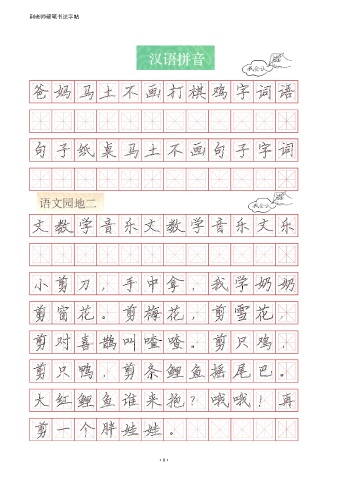 田老师硬笔书法字帖
汉语拼音
我会认
爸妈马土不画打棋鸡字词语
句子纸桌马土不画句子字词
语文园地二
我会认
文数学音乐文数学音乐文乐
小剪刀，手中拿，我学奶奶
剪窗花。剪梅花，剪雪花，
剪对喜鹊叫喳喳。剪只鸡，
剪只鸭，剪条鲤鱼摇尾巴。
大红鲤鱼谁来抱？哦哦！再
剪一个胖娃娃。